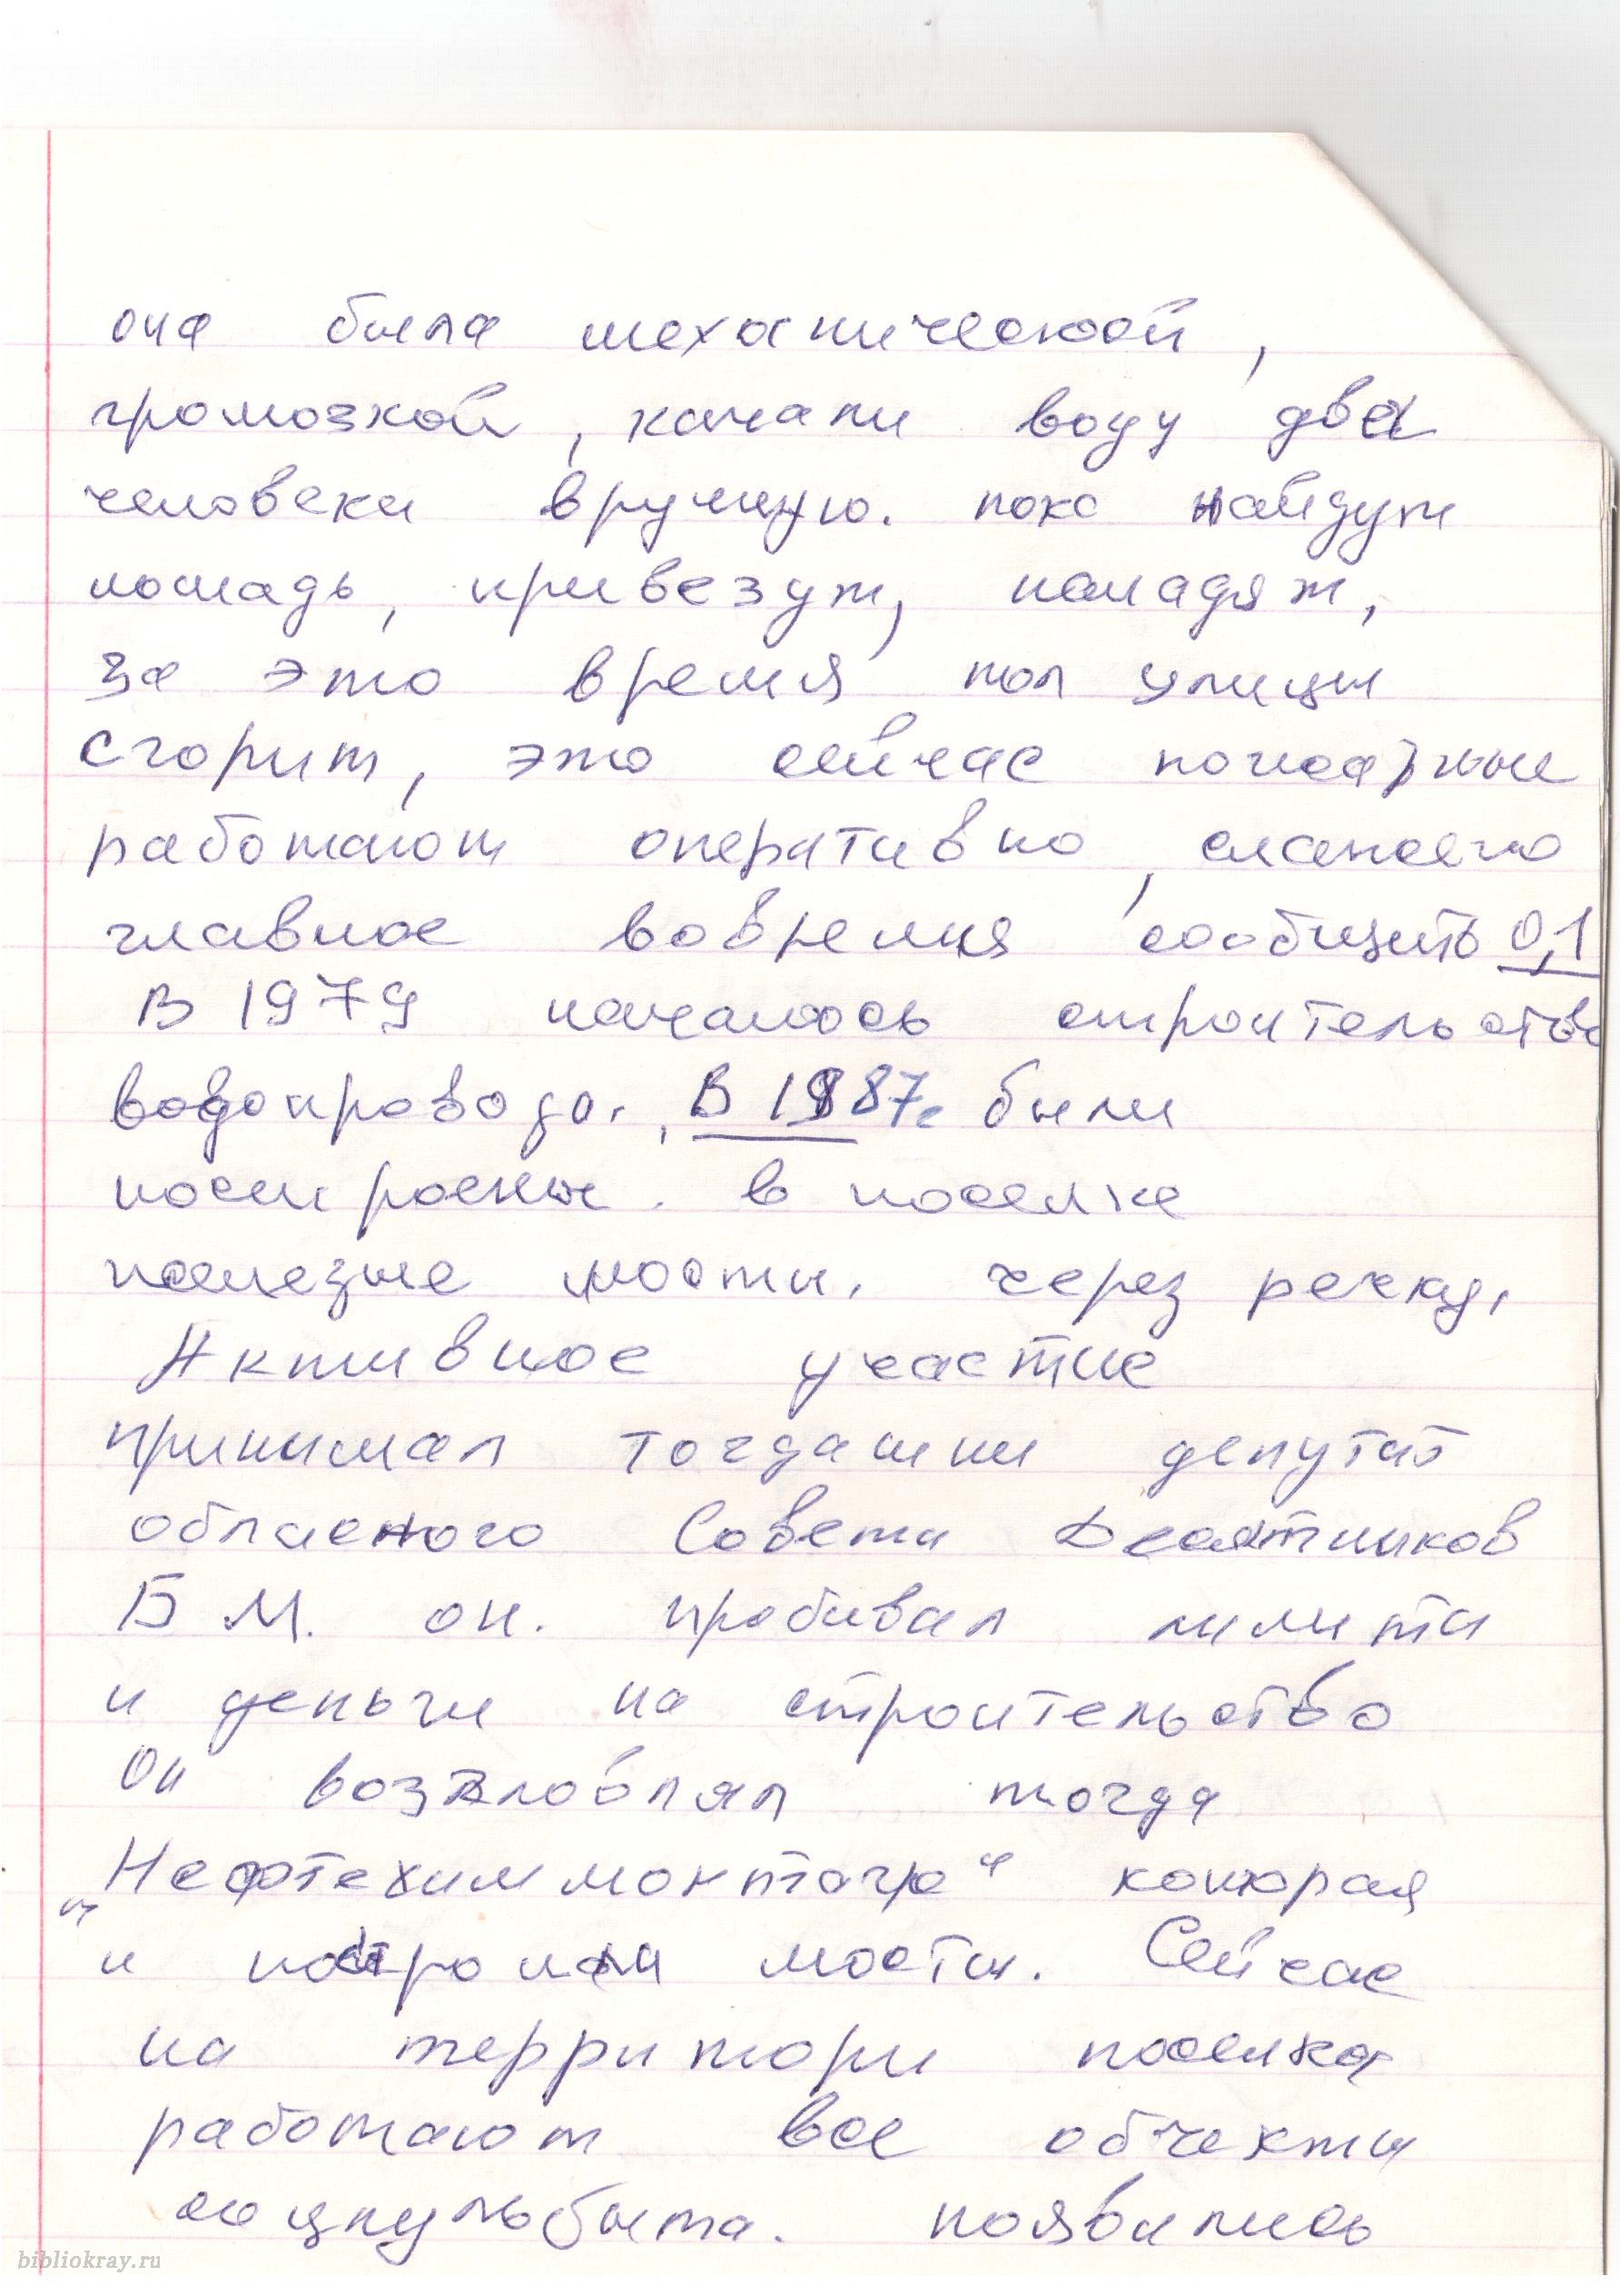 она была механической,
громозкой, качали воду два
человека вручную. пока найдут
лошадь, привезут, наладят,
за это время пол улицы
сгорит, это сейчас пожарные
работают оперативно, слаженно
главное вовремя сообщить 0,1
В 1979 началось строительство
водопровода. В 1987г были
построены в поселке
железные мосты. через речку,
Активное участие
принимал тогдашни депутат
обласного Совета Десятников
Б М. он. пробивал лимиты
и деньги на строительство
Он возглавлял тогда
"Нефтехиммонтаж" которая
и построила мосты. Сейчас
на территори поселка
работают все обчекты
соцкультбыта. появились
bibliokray.ru